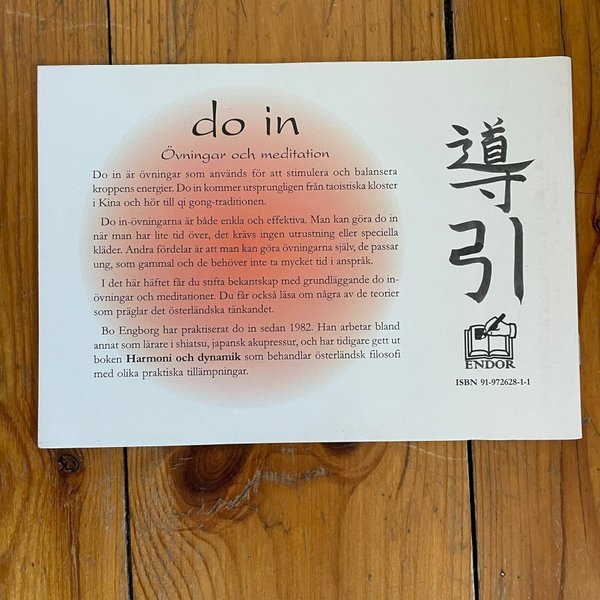 do in
Övningar och meditation
Do in är övningar som används för att stimulera och balansera
kroppens energier. Do in kommer ursprungligen från taoistiska kloster
i Kina och hör till qi gong-traditionen.
Do in-övningarna är både enkla och effektiva. Man kan göra do in
när man har lite tid över, det krävs ingen utrustning eller speciella
kläder. Andra fördelar är att man kan göra övningarna själv, de passar
ung, som gammal och de behöver inte ta mycket tid i anspråk.
I det här häftet får du stifta bekantskap med grundläggande do in-
övningar och meditationer. Du får också läsa om några av de teorier
som präglar det österländska tänkandet.
Bo Engborg har praktiserat do in sedan 1982. Han arbetar bland
annat som lärare i shiatsu, japansk akupressur, och har tidigare gett ut
boken Harmoni och dynamik som behandlar österländsk filosofi
med olika praktiska tillämpningar.
導
引
ENDOR
ISBN 91-972628-1-1